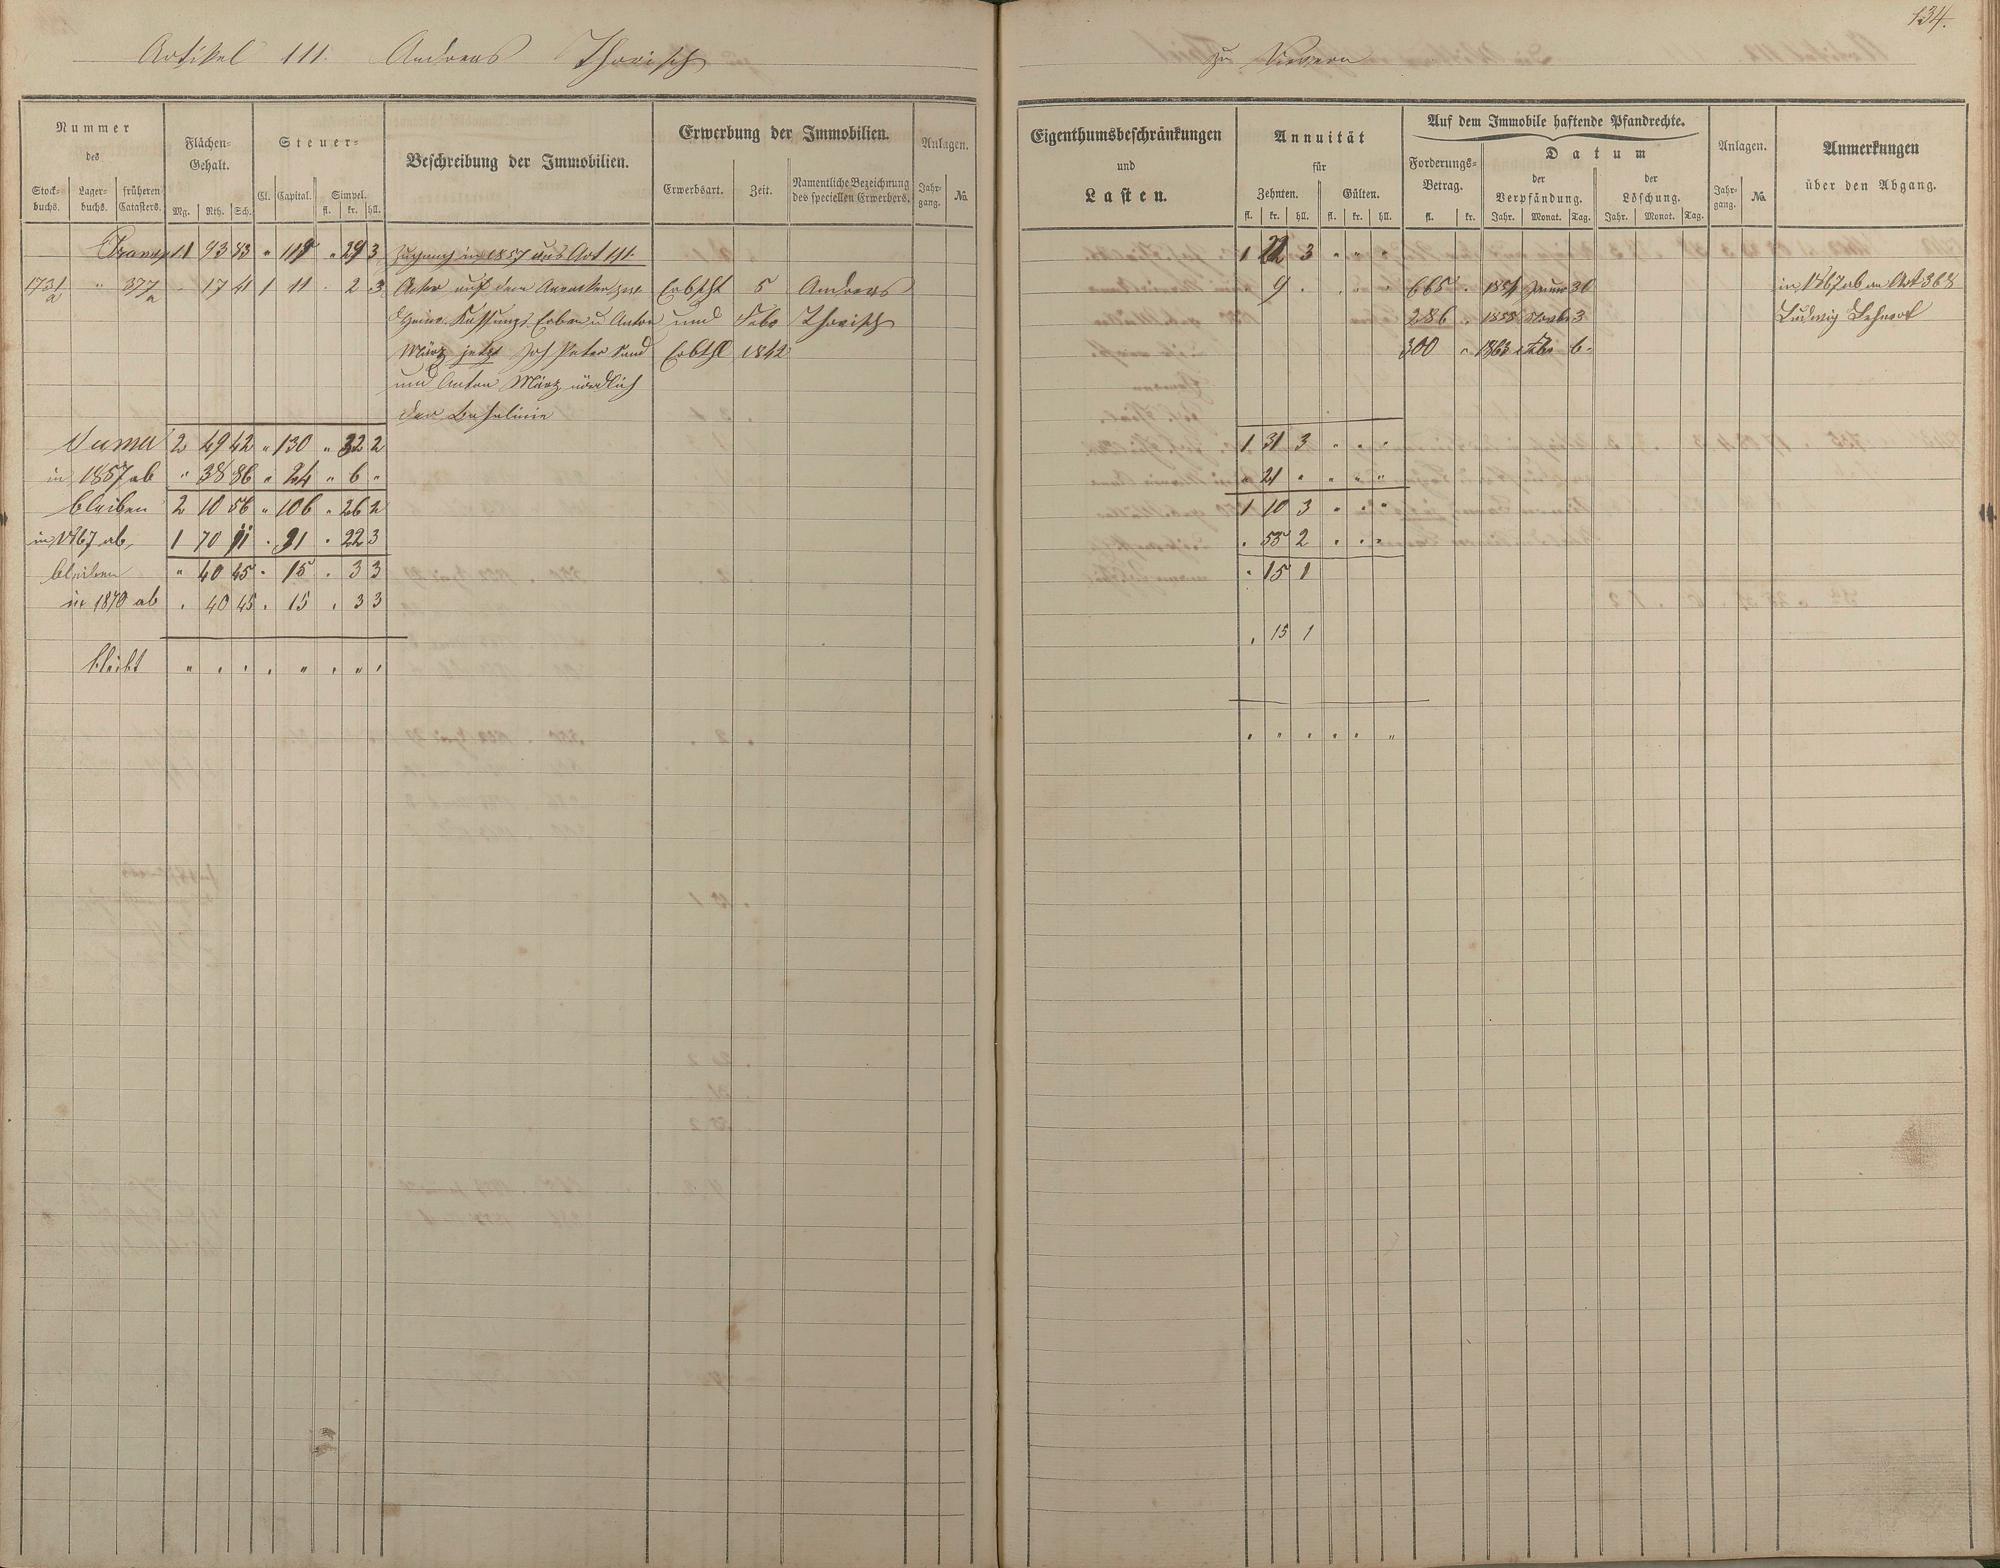 134.
Artikel 111. Andreas Thorisch
zu Sievern
Nummer des
Stock-buchs. Lager-buchs. früheren Catasters.
Flächen-Gehalt.
Mg. Rth. Sch.
Steuer-
Cl. Capital. Simpel.
fl. kr. hll.
Beschreibung der Immobilien.
Erwerbung der Immobilien.
Erwerbsart. Zeit. Namentliche Bezeichnung des speciellen Erwerbers.
Anlagen.
Jahr-gang. No.
Eigenthumsbeschränkungen und Lasten.
Annuität für
Zehnten. Gülten.
fl. kr. hll. fl. kr. hll.
Auf dem Immobile haftende Pfandrechte.
Forderungs-Betrag.
fl. kr.
Datum
der Verpfändung. der Löschung.
Jahr. Monat. Tag. Jahr. Monat. Tag.
Anlagen.
Jahr-gang. No.
Anmerkungen über den Abgang.
Transp 11 93 83 " 119 " 29 3 Zugang in 1857 aus Art 111. 1 22 3 " " "
1731/a " 377/a " 17 41 1 11 " 2 3 Acker auf dem zw. Erbthl 5 Andreas 9 . 665 . 1854 Januar 30 in 1867 ab an Art 368
Heinr. Erben u Anton und Febr Thorisch 286 " 1858 Novbr 3 Ludwig
März jetzt Joh Peter und Erbthl 1842 300 " 1863 Febr 6.
und Anton März nördlich
der Bahnlinie
Summa 2 49 42 " 130 " 32 2 1 31 3 " " "
in 1857 ab " 38 86 " 24 " 6 " " 21 " " " "
bleiben 2 10 56 " 106 " 26 2 1 10 3 " " "
in 1867 ab, 1 70 11 " 91 " 22 3 . 55 2 . " "
bleiben " 40 45 " 15 . 3 3 . 15 1
in 1870 ab . 40 45 . 15 . 3 3
. 15 1
bleibt " . . . " . " .
. " . . . "